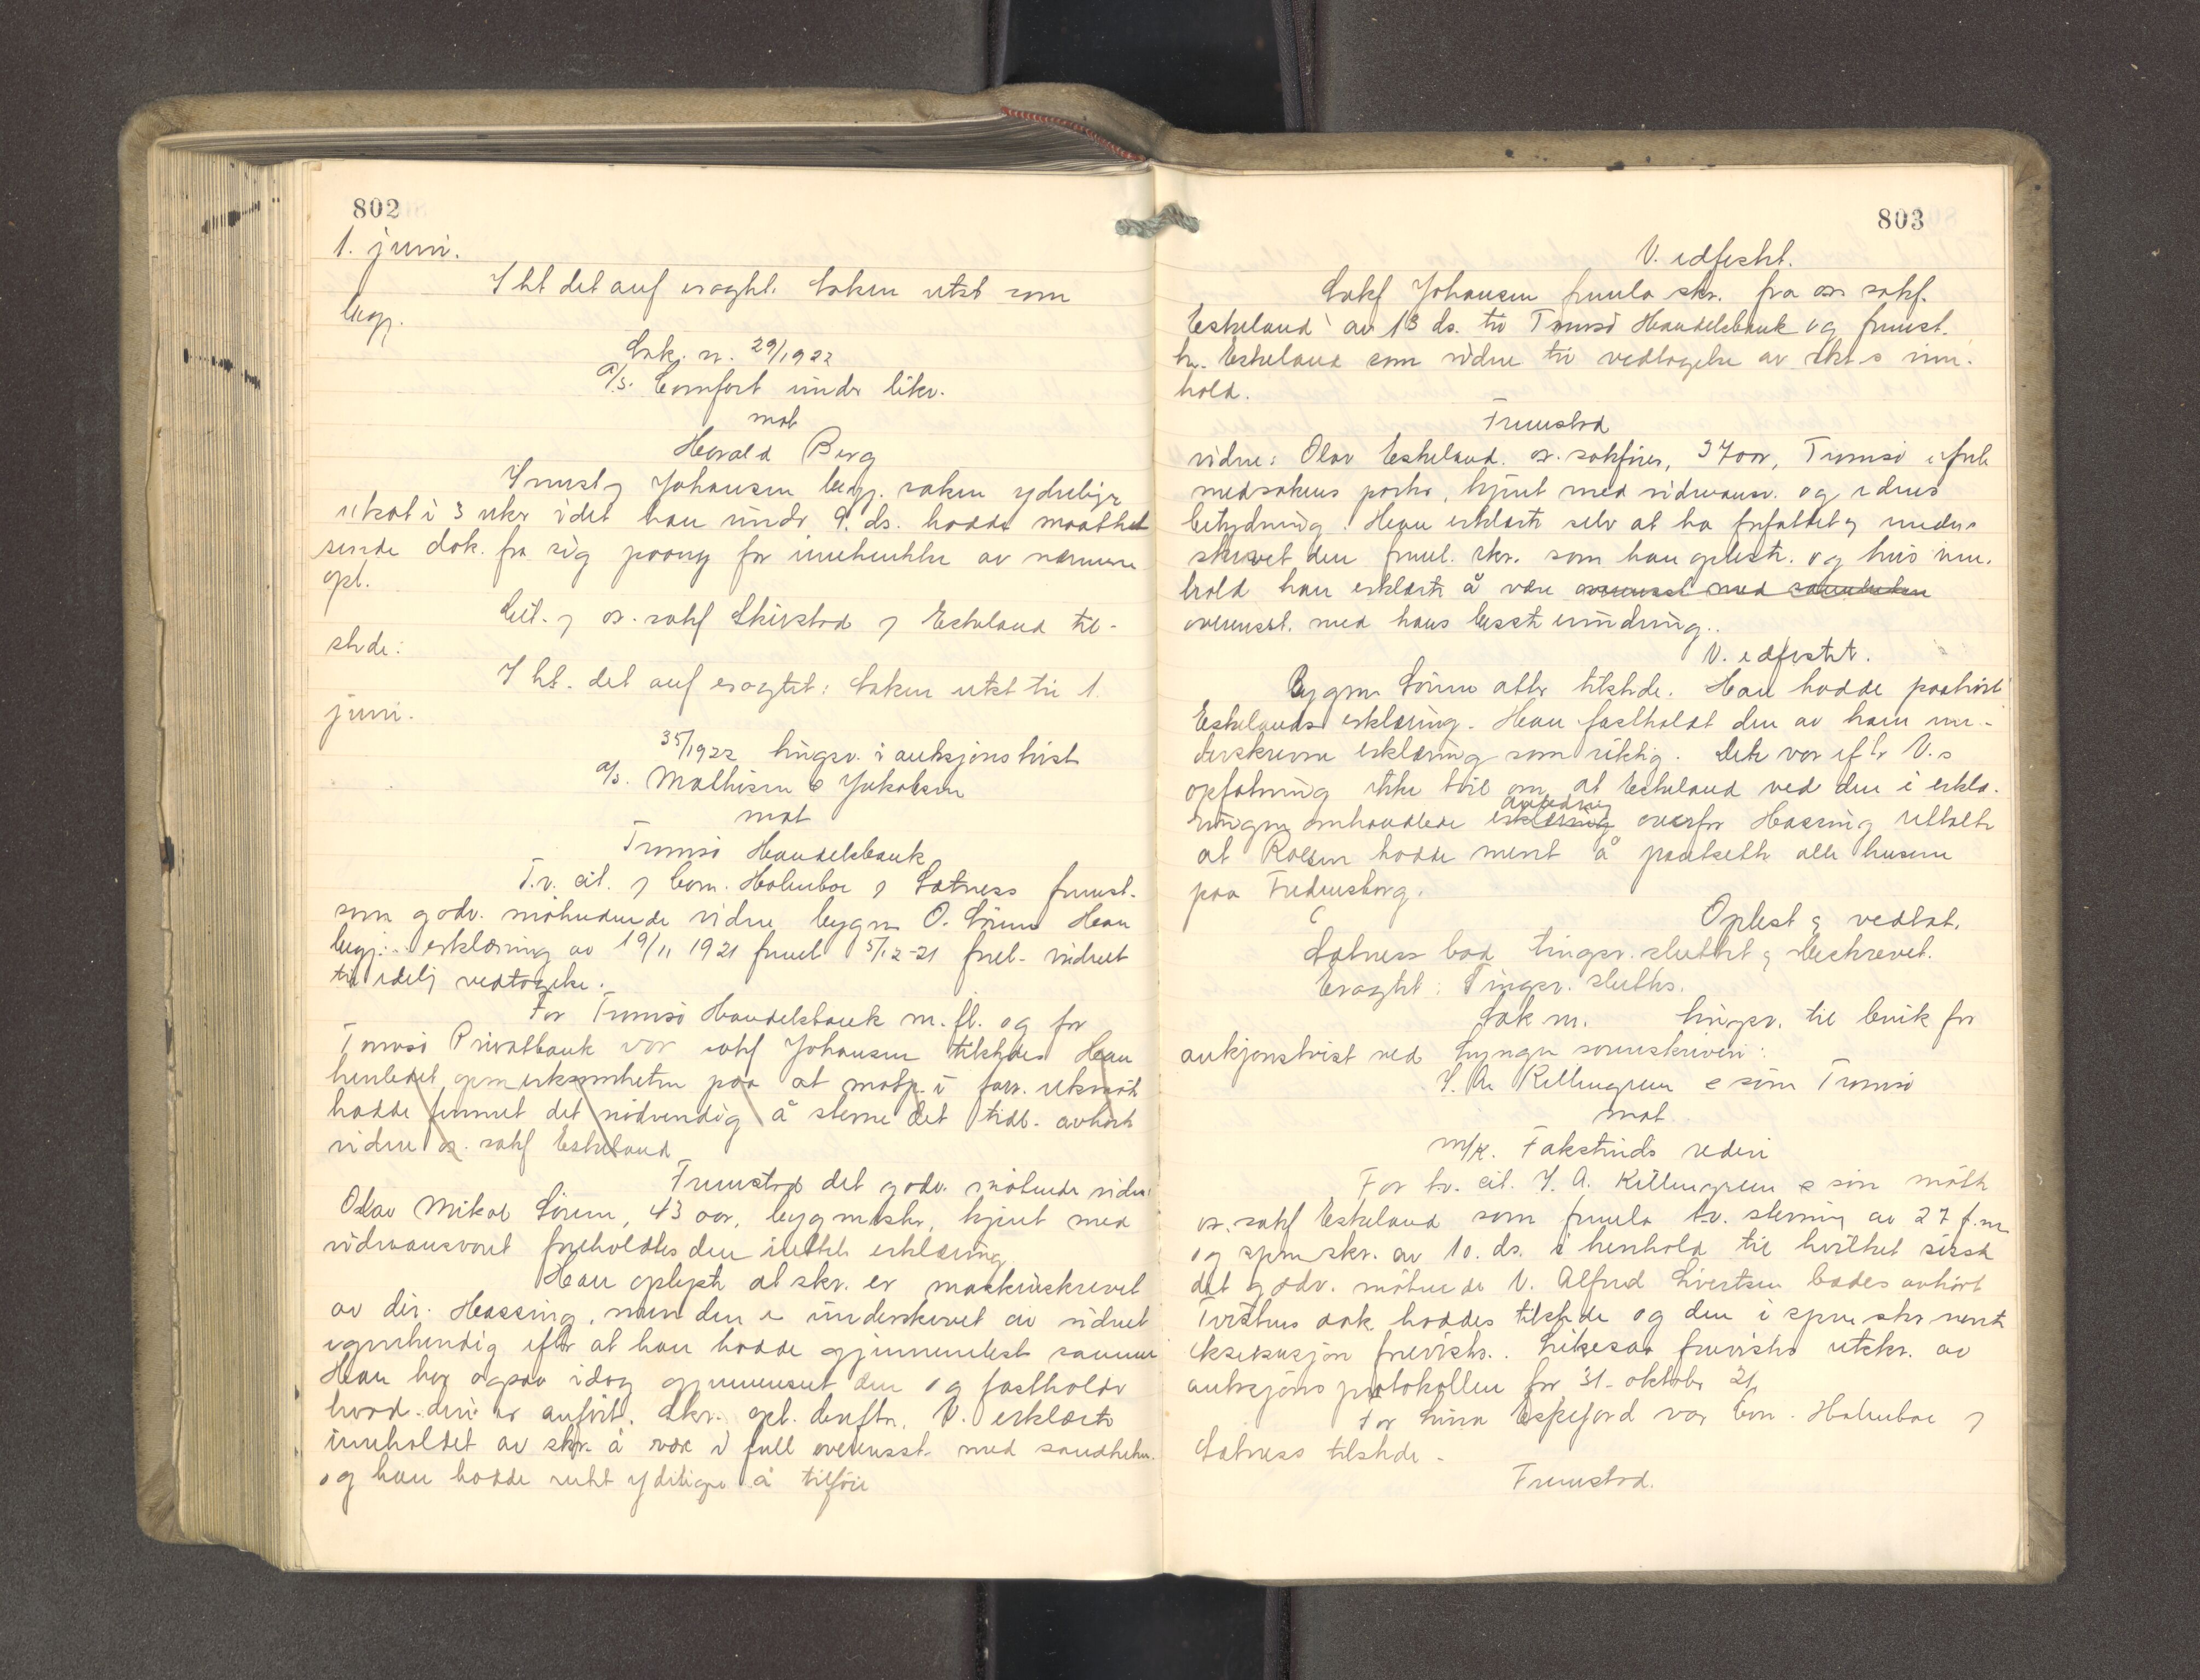 802
1. juni.
I ht det anf eragtet. Saken utst som
begj.
Sak. nr. 29/1922
A/S. Comfort under likv.
mot
Harald Berg
Johansen begj. saken yderligr
utsat i 3 uker idet han under 9. ds. hadde maattet
sende dok. fra sig paany for indhentelse av nærmere
opl.
Cit. og os. sakf Skivstad og Eskeland til-
stede:
I ht. det anf eragtet: Saken utst til 1.
juni.
35/1922 tingsv. i auksjonstvist
A/S. Mathisen & Jakobsen
mot
Tromsø Handelsbank
T.v. cit. og Com. Holmboe og Sætness fremst.
som godv. møtende vidne bygm O. Sörum Han
begj. erklæring av 19/11 1921 freml 5/12-21 frel. vidnet
til edelig vedtagelse.
For Tromsø Handelsbank m.fl. og for
Tromsø Privatbank var sakf Johansen tilstede. Han
henledet opmerksomheten paa at motp. i forr. retsmöte
hadde funnet det nödvendig å stevne det tidl. avhørte
vidne os. sakf Eskeland
Fremstod det godv. møtende vidne:
Olav Mikal Sörum, 43 aar, bygmester, kjent med
vidneansvaret foreholdtes den irettel. erklæring
Han oplyste at skr. er maskinskrevet
av dir. Hassing, men den er underskrevet av vidnet
egenhendig efter at han hadde gjennemlest samme
Han har ogsaa idag gjennemset den og fastholdr
hvad deri er anfört. Skr. opl. derefter. V. erklærte
inneholdet av skr. å være i full overensst. med sandheten
og han hadde intet yderligere å tilföie
803
V. edfestet.
Sakf Johansen fremla skr. fra os sakf.
Eskeland av 13 ds. til Tromsö Handelsbank og fremst.
hr. Eskeland som vidne til vedtagelse av skr.s inn-
hold.
Fremstod
vidne: Olav Eskeland. os. sakfører, 37 aar, Tromsö
medsakens parter, kjent med vidneansv. og edens
betydning. Han erklærte selv at ha forfattet og under-
skrevet den freml. skr. som han opleste. og hvis inn-
hold han erklærte å være overensst med sandheten
overensst. med hans beste erindring.
V. edfestet.
Bygm Sörum atter tilstede. Han hadde paahört
Eskelands erklæring. Han fastholdt den av ham un-
derskrevne erklæring som riktig. Det var efter V.s
opfatning ikke tvil om at Eskeland ved den i erklæ-
ringen omhandlede erklæring overfor Hassing uttalte
at Roesen hadde ment å pantsette alle husene
paa Fredensborg.
Oplest & vedtat.
Sætness bad tingsv. sluttet & beskrevet.
Eragtet: Tingsv. sluttes.
Sak nr. tingsv. til bruk for
auksjonstvist ved Lyngen sorenskriveri:
J. A. Killengreen & sön Tromsö
mot
M/K. Fakstinds rederi
For tv. cit. J. A. Killengreen & sön mötte
os. sakf Eskeland som fremla tv. stevning av 27 f.m
og spm skr. av 10. ds. i henhold til hvilket sisste
det godv. mötende V. Alfred Sivertsen bades avhört
Tvistens dok. haddes tilstede og den i spm skr nevnte
eksekusjon frevistes. Likesaa frevistes utskr. av
auksjonsprotokollen for 31. oktober 21
For Espejord var Com. Holmboe og
Sætness tilstede.
Fremstod.